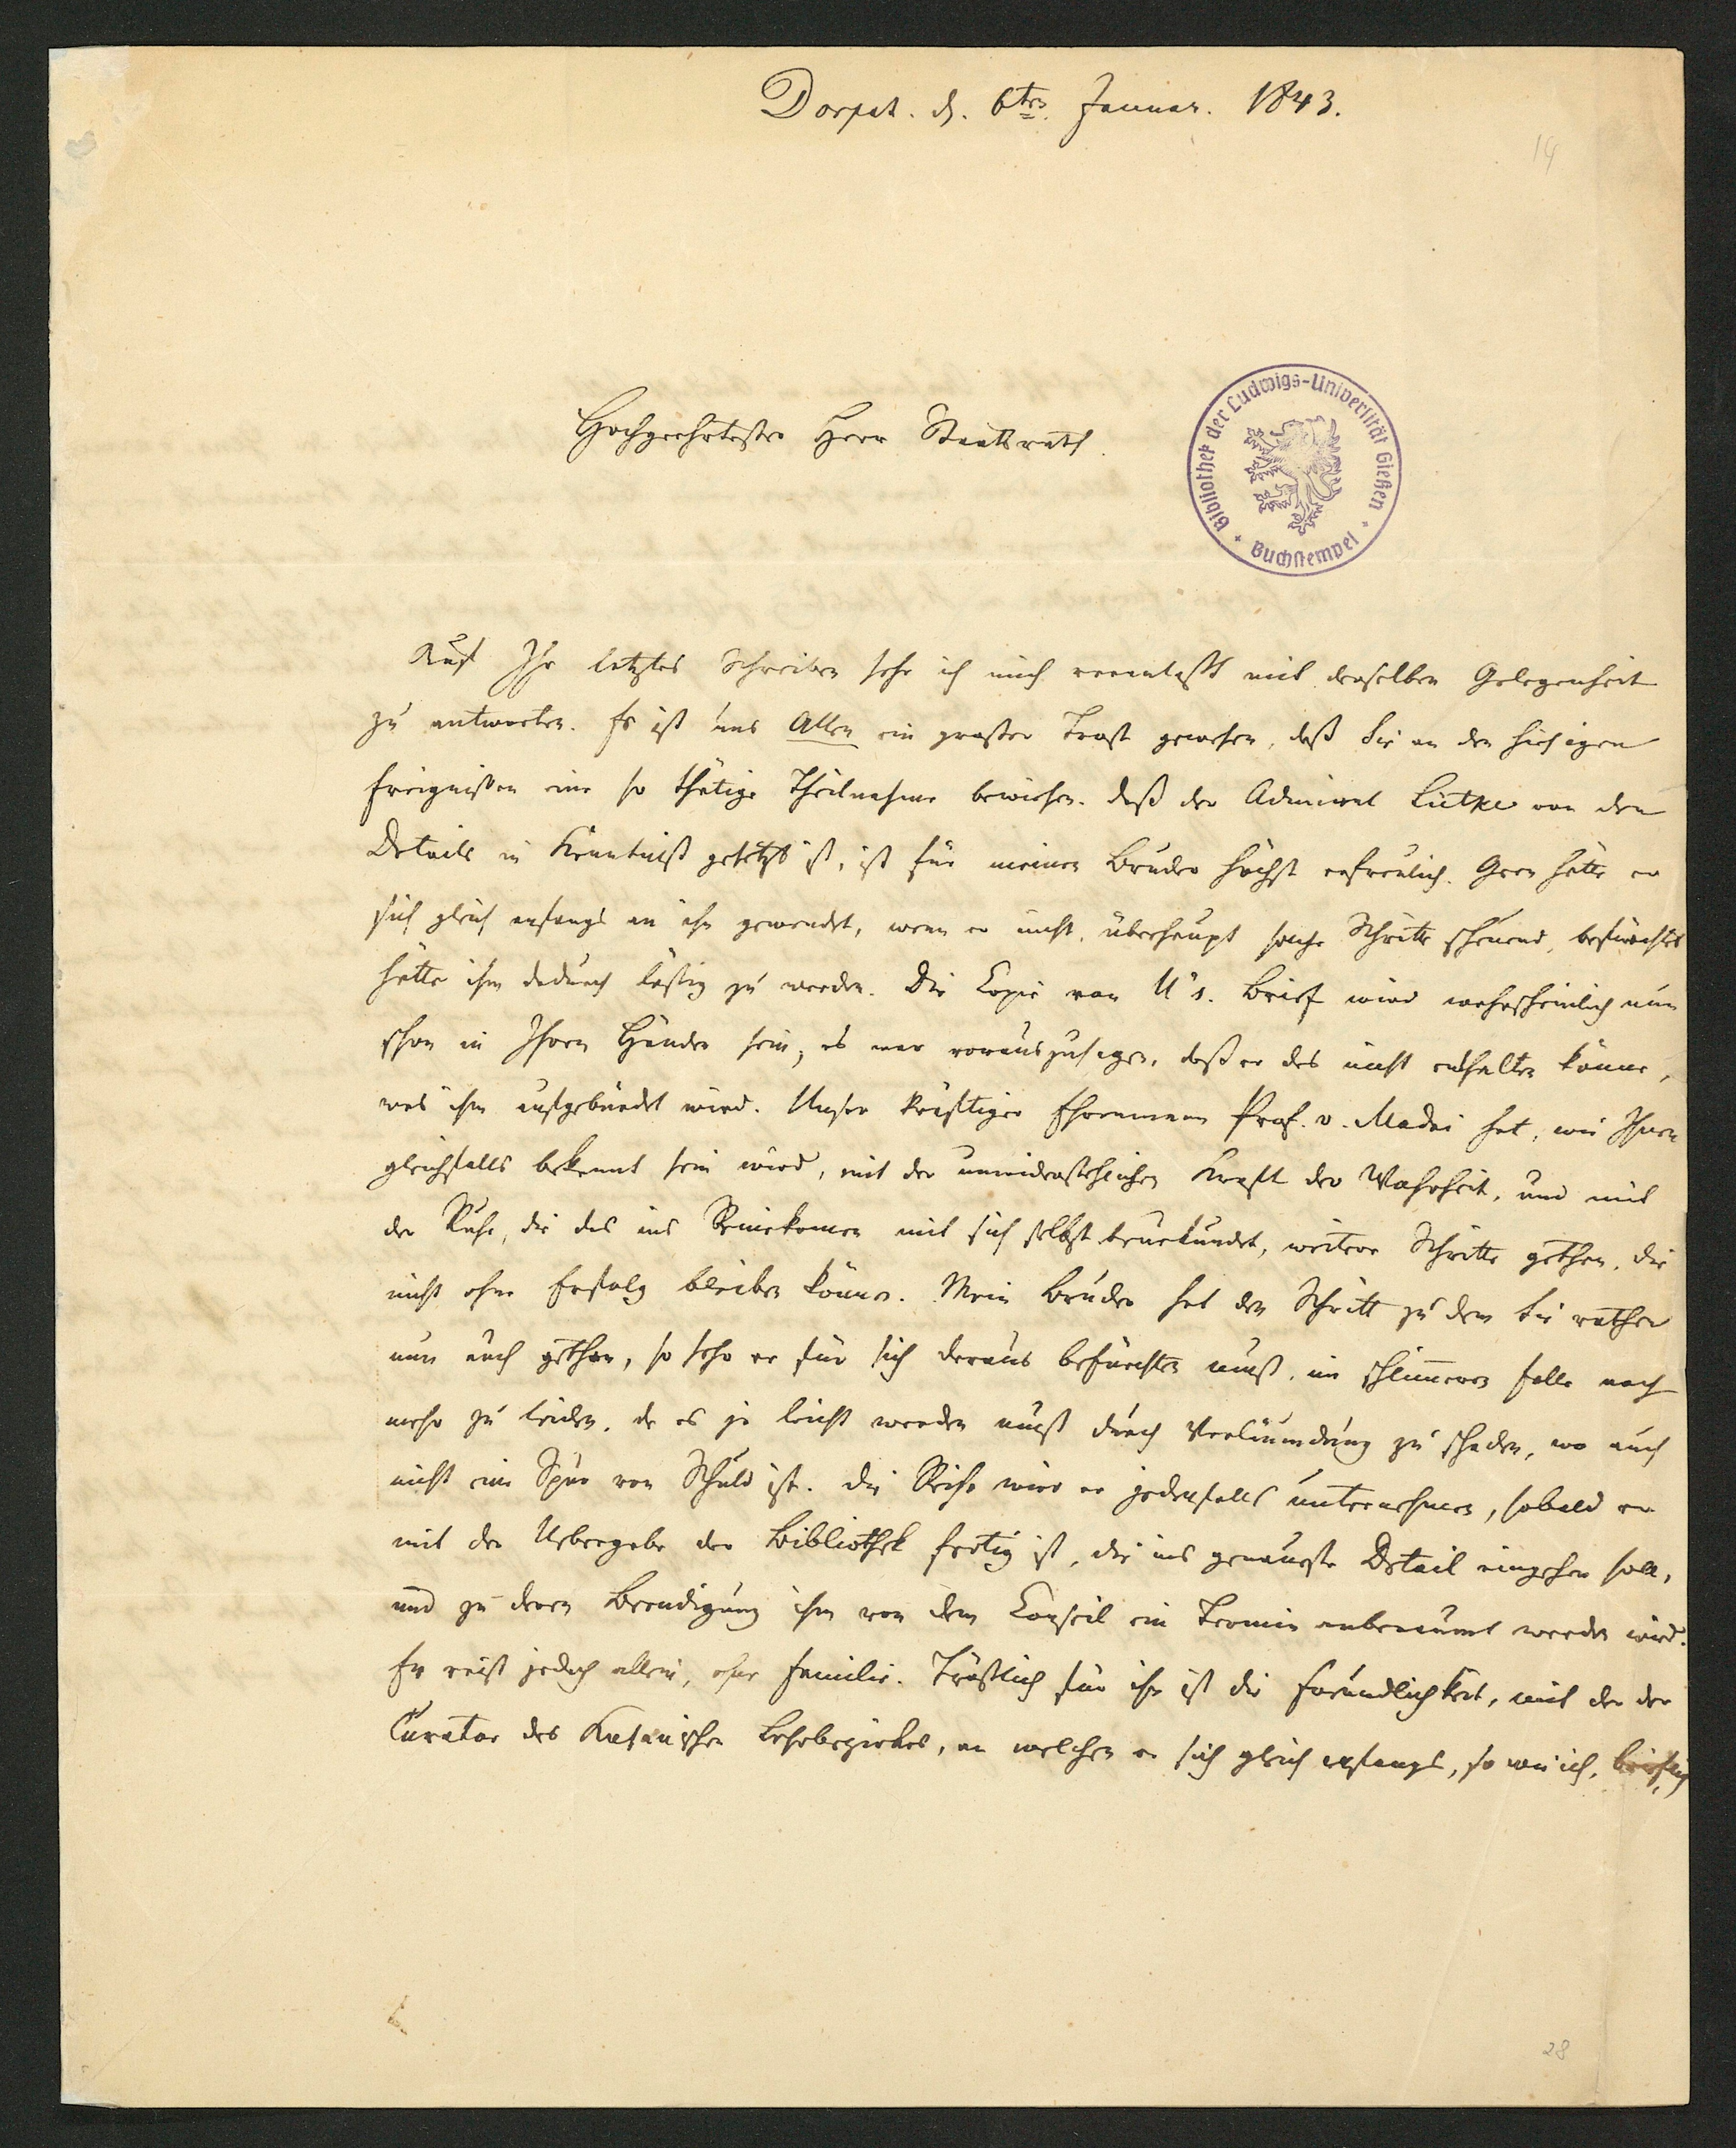 Dorpat. d. 6ten Januar. 1843.
14
Hochgeehrtester Herr Staatsrath.
Bibliothek der Ludwigs-Universität Gießen
Buchstempel
Auf Ihr letztes Schreiben sehe ich mich veranlaßt mit derselben Gelegenheit
zu antworten. Es ist uns Allen ein großer Trost gewesen, daß Sie an den hiesigen
Ereignißen eine so thätige Theilnahme bewiesen. Daß der Admiral Lütke von den
Details in Kenntniß gesetzt ist, ist für meinen Bruder höchst erfreulich. Gern hätte er
sich gleich anfangs an ihn gewendet, wenn er nicht, überhaupt solche Schritte scheuend, befürchtet
hätte ihm dadurch lästig zu werden. Die Copie von U's. Brief wird wahrscheinlich nun
schon in Ihren Händen sein; es war vorauszusagen, daß er das nicht enthalten könne,
was ihm aufgebürdet wird. Unser kräftiger Ehrenmann Prof. v. Madai hat, wie Ihnen
gleichfalls bekannt sein wird, mit der unwiderstehlichen Kraft der Wahrheit, und mit
der Ruhe, die das ins Reinekomen mit sich selbst beurkundet, weitere Schritte gethan, die
nicht ohne Erfolg bleiben können. Mein Bruder hat den Schritt zu dem Sie rathen
nun auch gethan, so sehr er für sich daraus befürchten muß, im schlimeren Falle noch
mehr zu leiden, da es ja leicht werden muß durch Verläumdung zu schaden, wo auch
nicht eine Spur von Schuld ist. Die Reise wird er jedenfalls unternehmen, sobald er
mit der Uebergabe der Bibliothek fertig ist, die ins genauste Detail eingehen soll,
und zu deren Beendigung ihm von dem Conseil ein Termin anberaumt werden wird.
Er reist jedoch allein, ohne Familie. Tröstlich für ihn ist die Freundlichkeit, mit der der
Curator des Kasanischen Lehrbezirkes, an welchen er sich gleich anfangs, so wie ich, brieflich
28